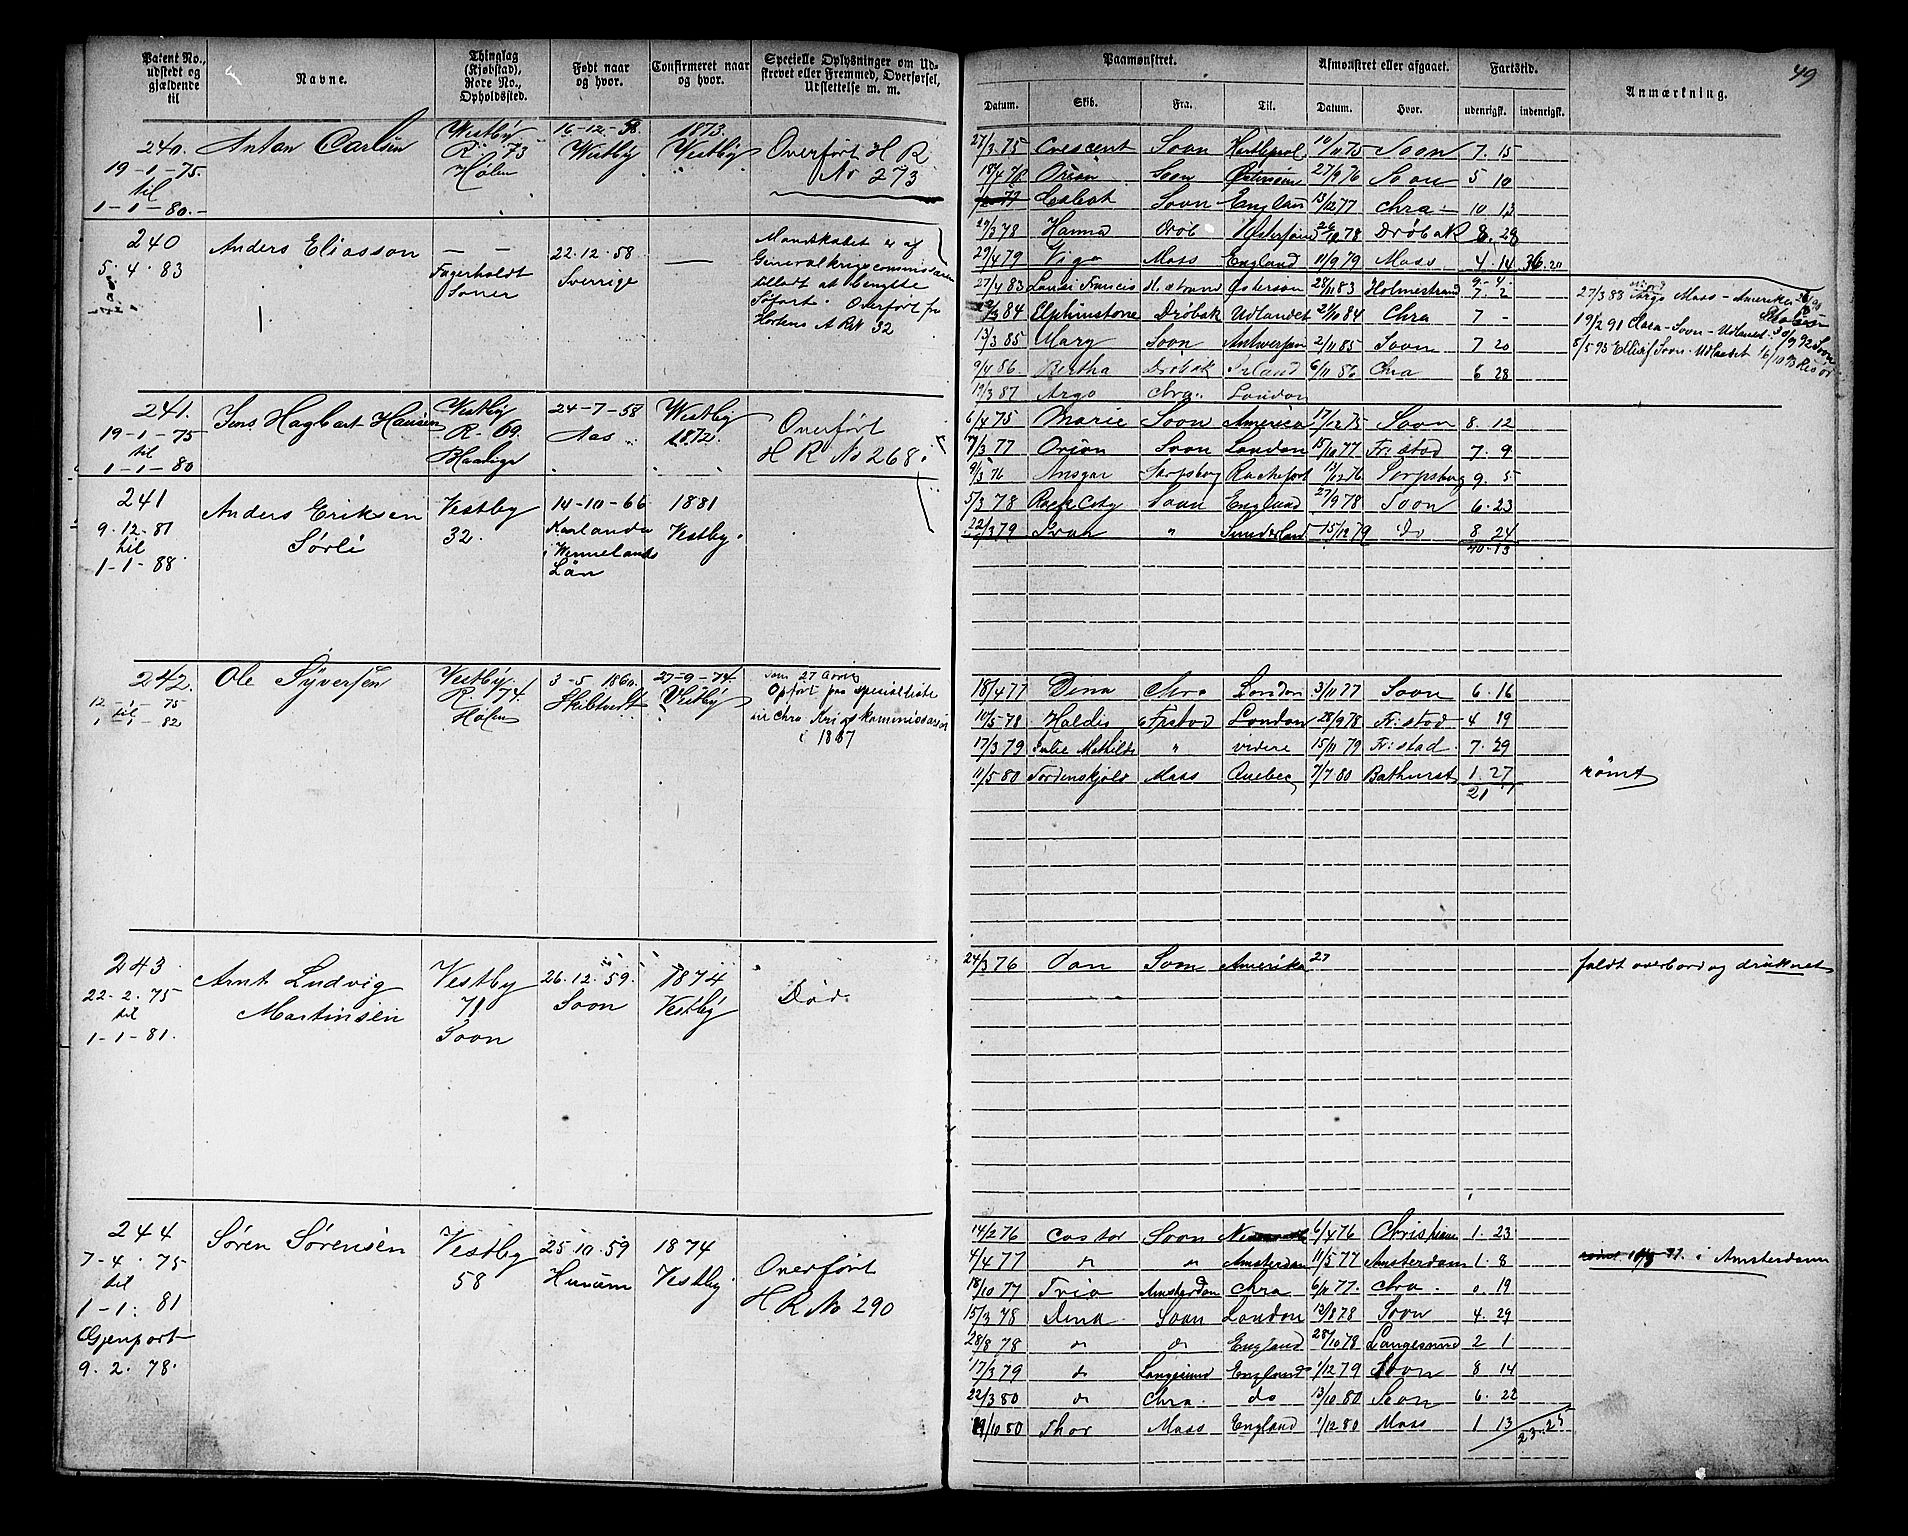 Patent No., udstedt og gjældende til
Navne.
Thinglag (Kjøbstad), Rode No., Opholdssted.
Født naar og hvor.
Confirmeret naar og hvor.
Specielle Oplysninger om Udstrevet eller Fremmed, Overførsel, Udslettelse m. m.
240. 19-1-75. til 1-1-80.-
Anton Carlsen
Westby R. 73 Hølen
16-12-58. Westby
1873. Westby
Overført H R No 273
240 5.4.83
Anders Eliasson
— — Fagerholdt Soner
22.12.58 Sverrige
—
Mandskabet er af Generalkrigscommissairen tilladt at benytte Søfart. Overført fra Hortens A R N 32
241. 19-1-75 til 1-1-80
Jens Hagbart Hansen
Westby R. 69.
24-7-58 Aas
Westby 1872.
Overført H R No 268.
241 9.12.81 til 1-1-88.
Anders Eriksen Sørli
Vestby 32.
14-10-66 Karlanda i Wermelands Län
1881 Vestby.
242. 12 - 75 til 1-1-82
Ole Syversen
Westby. R. 74. Hølen
3-5-1860. Skibtvedt
27-9-74. Vestby
Opført paa specialliste
243 22-2-75 til 1-1-81.
Arnt Ludvig Martinsen
Vestby 71 Soon
26.12.59. Soon
1874 Vestby
Død.
244 7-4.75 til 1-1.81 Gjenpart 9.2.78.
Søren Sørensen
Vestby 58
25.10.59 Hurum
1874 Vestby.
Overført H R No 290
49
Paamønstret.
Afmønstret eller afgaaet.
Fartstid.
Anmærkning.
Datum. Skib. Fra. Til. Datum. Hvor. udenrigst. indenrigst.
27/3 75 Crescent Soon Hartlepool 10/11 75 Soon 7.15
18/4 76 Orion Soon Østersøen 27/9 76 Soon 5 10
Soon England 13/12 77 Chra 10 13
27/3 78 Hanna Drøb Østersøen 78 Drøbak 8.28
29/4 79 Viga Moss England 11/9 79 Moss 4.14 36.20
27/4 83 Francis Østersøen 28/11 83 Holmestrand 7.2
84 Elphinstone Drøbak Udlandet 24/10 84 Chra 7 -
13/3 85 Mary Soon Antwerpen 2/11 85 Soon 7 20
9/4 86 Bertha Drøbak Irland 6/11 86 Chra 6 28
19/3 87 Argo Chra. London
27/3 88 Argo Moss - Amerika
19/2 91 Clara - Soon - Udlandet 92 Soon
8/5 93 Soon - Udlandet 16/10 93
6/4 75 Marie Soon America 17/12 75 Soon 8.12
7/3 77 Orion Soon London 15/10 77 Fr: stad 7.9
9/3 76 Ansgar Sarpsborg Rochefort 13/12 76 Sarpsborg 9.5
5/3 78 Rock City Soon England 27/9 78 Soon 6.23
22/3 79 Svan " Sunderland 15/12 79 Do 8 24
40.13
18/4 77 Dina Chra London 3/11 77 Soon 6.16
10/5 78 Haldis Frstad London 28/9 78 Fr: stad 4 19
17/3 79 Julie Mathilde " videre 15/11 79 Fr: stad 7.29
11/5 80 Tordenskjold Moss Quebec 7/7 80 Bathurst 1.27 rømt
21
24/3 76 Dan Soon Amerika 27 faldt overbord og druknet
14/2 76 Castor Soon 6/4 76 Christiania 1.23
4/4 77 do do Amsterdam 11/5 77 Amsterdam 1.8 i Amsterdam
18/10 77 Frio Amsterdam Chra 6/11 77. Chra. 0 19
15/3 78 Dina Soon London 13/8 78 Soon 4.29
28/8 78 do do England 28/10 78 Langesund 2 1
17/3 79 do Langesund England 1/12 79 Soon 8 14
22/3 80 do Chra. do 13/10 80 Soon 6.22
19/10 80 Thor Moss England 1/12 80 Moss 1 13 23.25